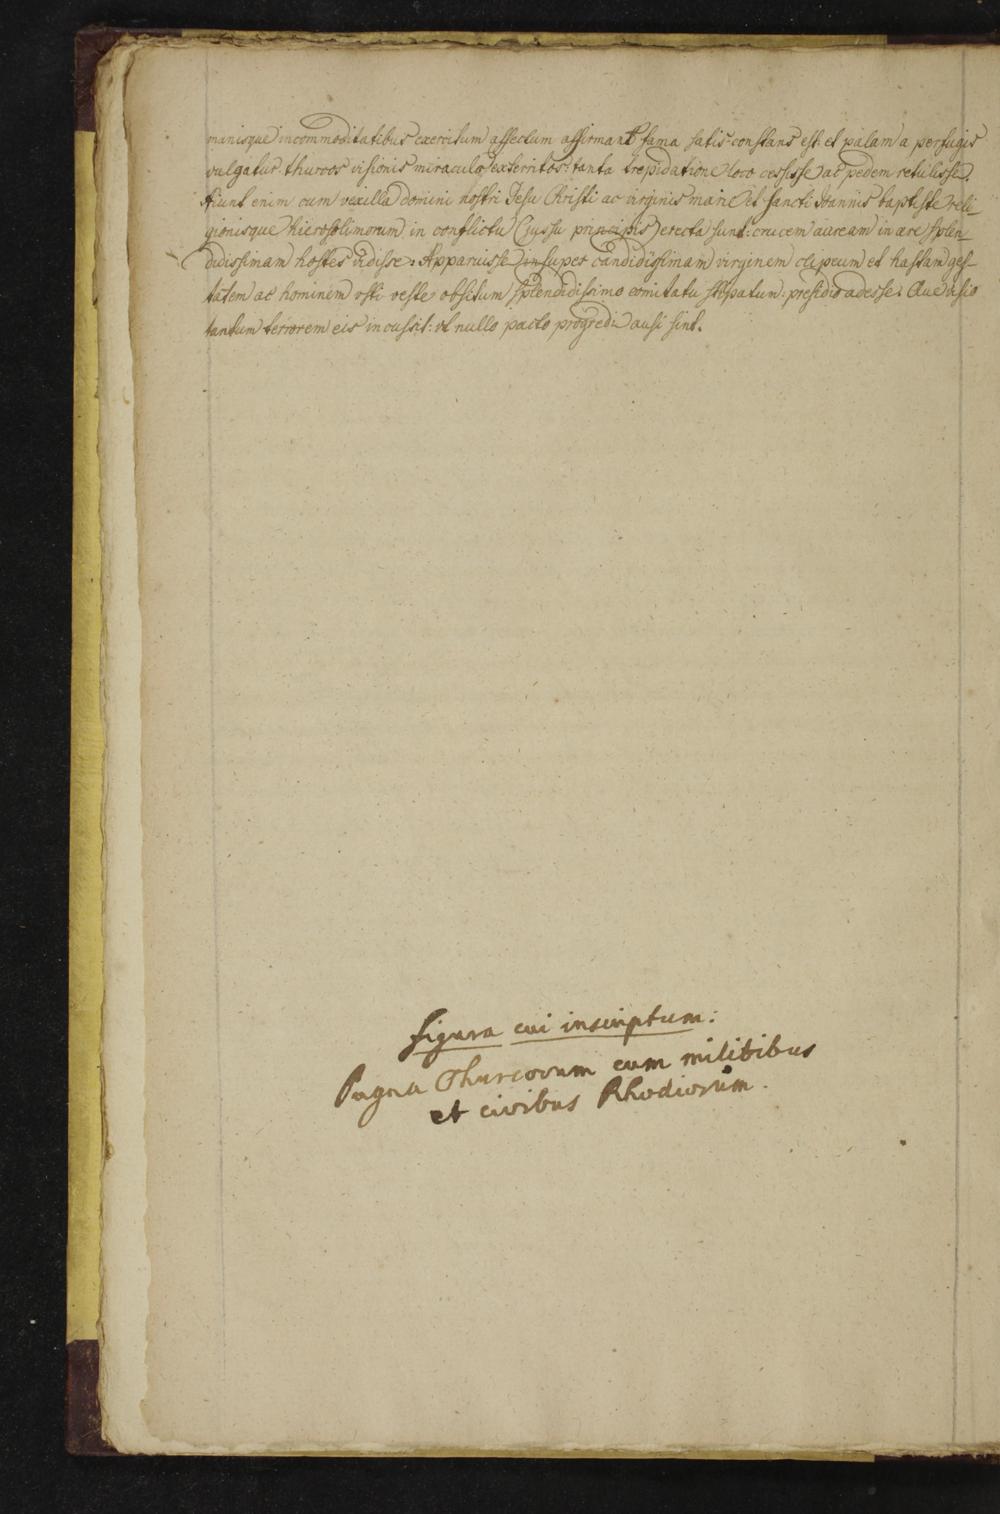 manisque incommoditatibus exercitum affectum affirmant fama satis constans est: et palam a perfugis
vulgatur thurcos visionis miraculo exterritos: tanta trepidatione loco cessisse ac pedem retulisse.
Aiunt enim cum vexilla domini nostri Jesu Christi ac virginis marie et sancti Joannis baptiste reli-
gionisque hierosolimorum in conflictu (iussu principis) erecta sunt: crucem auream in aere splen-
didissimam hostes vidisse: Apparuisse insuper candidissimam virginem clipeum et hastam ges-
tatem ac hominem vili veste obsitum splendidissimo comitatu stipatum: presidio adesse: Que visio
tantum terrorem eis incussit: vt nullo pacto progredi ausi sint.
figura cui inscriptum:
Pugna Thurcorum cum militibus
et civibus Rhodiorum.